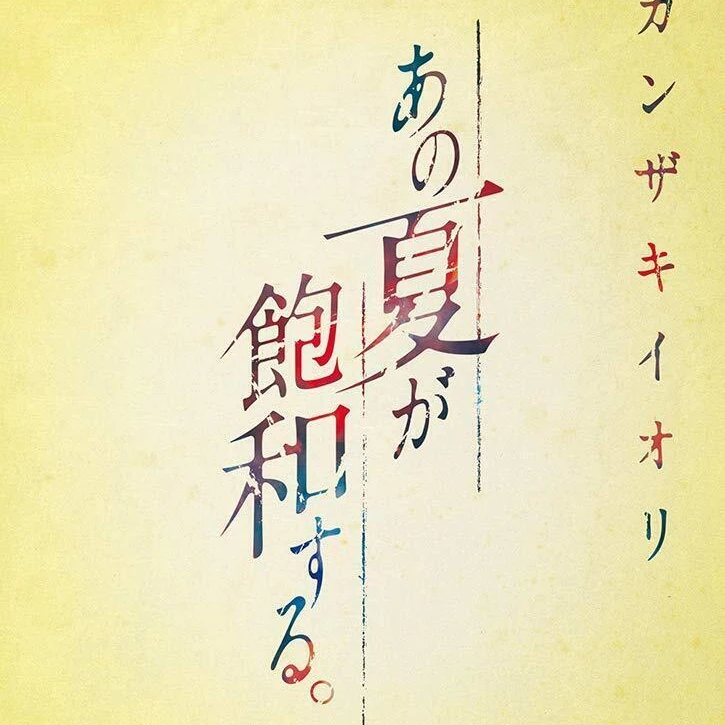 カンザキイオリ
あの夏が
飽和する。